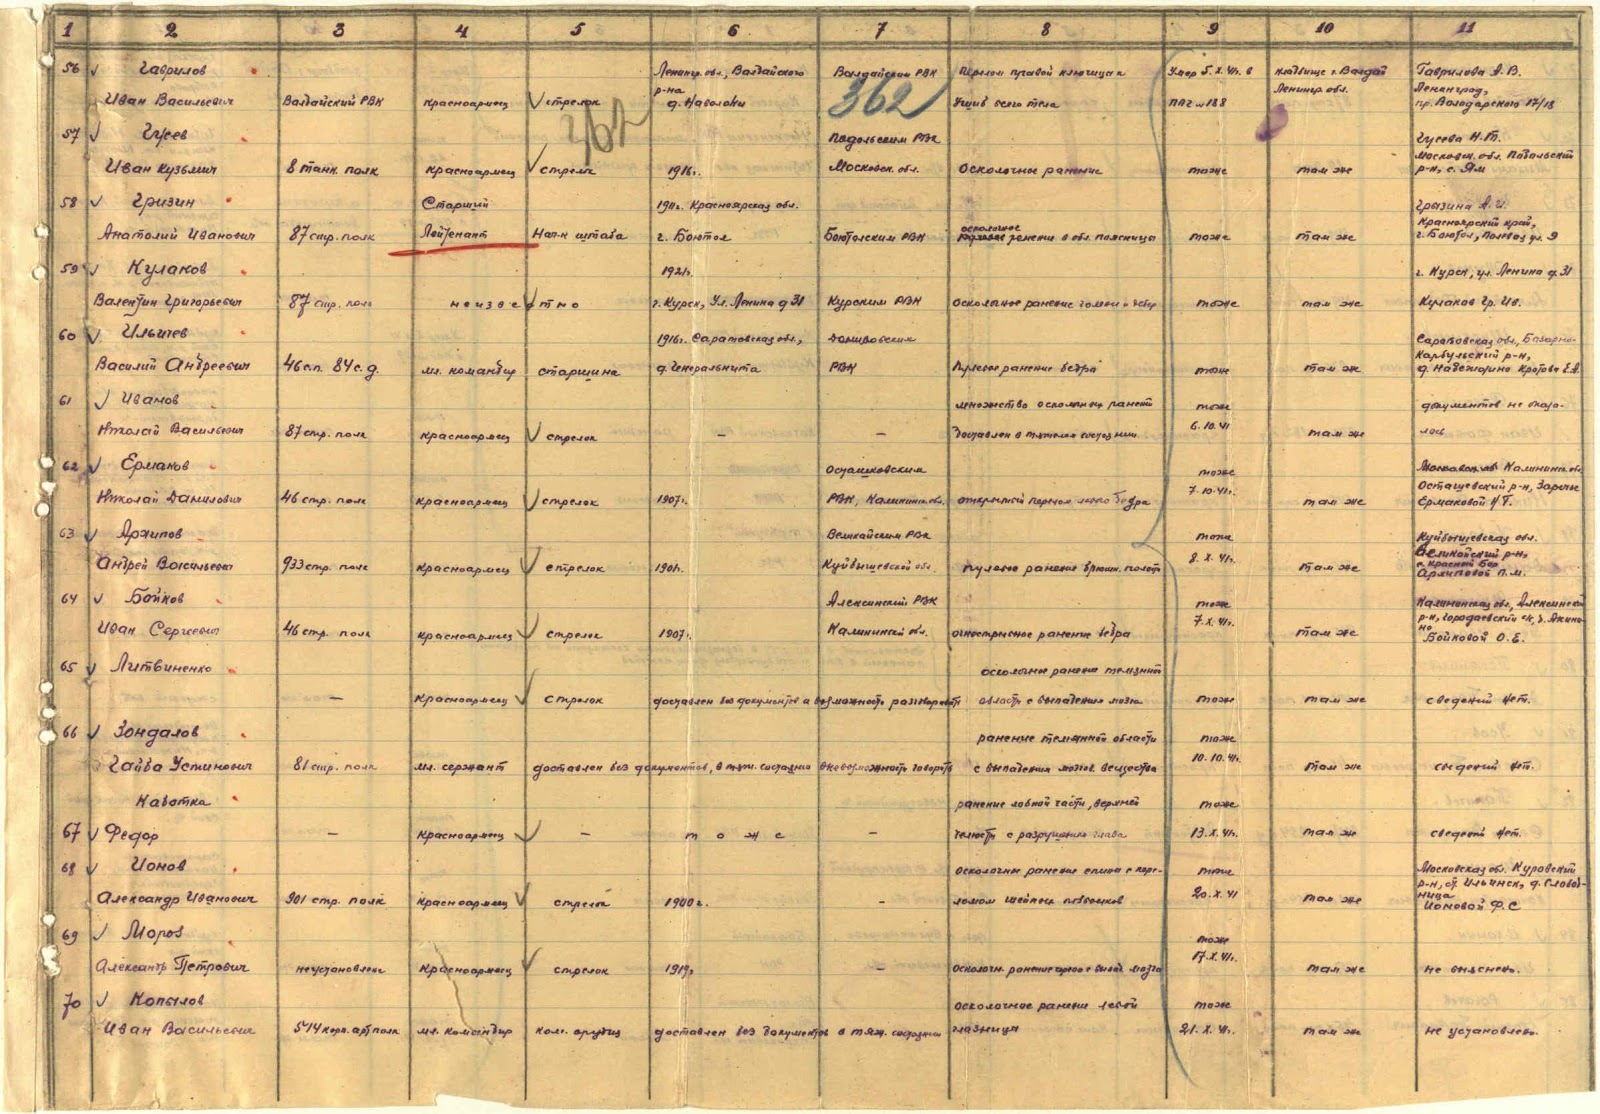 1 2 3 4 5 6 7 8 9 10 11
56 Гаврилов Ленингр. обл., Валдайского Валдайским РВК перелом правой ключицы и Умер 5.X.41г. в кладбище г. Валдай Гаврилова А. В.
р-на Ленингр. обл. Ленинград,
Иван Васильевич Валдайский РВК красноармеец стрелок д. Наволоки 362 Ушиб всего тела ППГ № 188 пр. Володарского 17/18
362
57 Гусев Подольским РВК Гусева Н. Т.
Московск. обл. Подольский
Иван Кузьмич 8 танк. полк красноармеец стрелок 1916г. Московск. обл. осколочное ранение тоже там же р-н, с. Ям
58 Гризин Старший 1911г. Красноярская обл. Грызина А. И.
осколочное Красноярский край,
Анатолий Иванович 87 стр. полк Лейтенант Нач-к штаба г. Боготол Боготолским РВК ранение в обл. поясницы тоже там же г. Боготол, 9
59 Кулаков 1921г. г. Курск, ул. Ленина д. 31
Валентин Григорьевич 87 стр. полк неизвестно г. Курск, Ул. Ленина д 31 Курским РВК осколочное ранение голени и тоже там же Кулаков Гр. Ив.
60 Ильичев 1916г. Саратовская обл., Саратовская обл., Базарно-
Карбулакский р-н,
Василий Андреевич 46 с.п. 84 с.д. мл. командир старшина РВК пулевое ранение бедра тоже там же д. Надеждино Кротова
61 Иванов множество осколочных ранений тоже документов не оказа-
6.10.41
Николай Васильевич 87 стр. полк красноармеец стрелок – – Доставлен в тяжелом состоянии там же лось
62 Ермаков Осташковским тоже Калининск. обл.
7.10.41г. Осташевский р-н, Заречье
Николай Данилович 46 стр. полк красноармеец стрелок 1907г. РВК, Калининск. обл. открытый перелом левого бедра там же Ермаковой Н. Т.
63 Архипов Великайским РВК тоже Куйбышевская обл.
8.X.41г. Великайский р-н,
с. Красный Бор
Андрей Васильевич 933 стр. полк красноармеец стрелок Куйбышевской обл. пулевое ранение брюшн. полост там же Архиповой П. М.
64 Бойков Алексинский РВК тоже Калининская обл., Алексинский
7.X.41г. р-н, с/с, д.
Иван Сергеевич 46 стр. полк красноармеец стрелок 1907г. Калининской обл. огнестрельное ранение бедра там же Бойковой О. Е.
65 Литвиненко осколочное ранение теменной
– красноармеец стрелок доставлен без документов а возможность разговаривать области с выпадением мозга тоже там же сведений нет.
66 Зондалов ранение теменной области тоже
10.10.41г.
Гайба Устинович 81 стр. полк мл. сержант доставлен без документов, в тяж. состоянии невозможность говорить с выпадением мозгов. вещества там же сведений нет.
Навотка ранение лобной части, верхней тоже
67 Федор – красноармеец – тоже – челюсти с разрушением глаза 13.X.41г. там же сведений нет.
68 Ионов осколочное ранение спины с пере- тоже Московская обл. Куровский
р-н, Ильинск, д. Слобод-
ница
Александр Иванович 901 стр. полк красноармеец стрелок 1900г. – ломом шейных позвонков 20.X.41 там же Ионовой Ф. С
69 Мороз тоже
17.X.41г.
Александр Петрович неустановлено красноармеец стрелок 1919г. – осколочн. ранение черепа с выпад. мозга там же не выяснено.
70 Копылов осколочное ранение левой тоже
Иван Васильевич 544 корп. арт. полк мл. командир ком. орудия доставлен без документов в тяж. состоянии глазница 21.X.41г. там же не установлено.